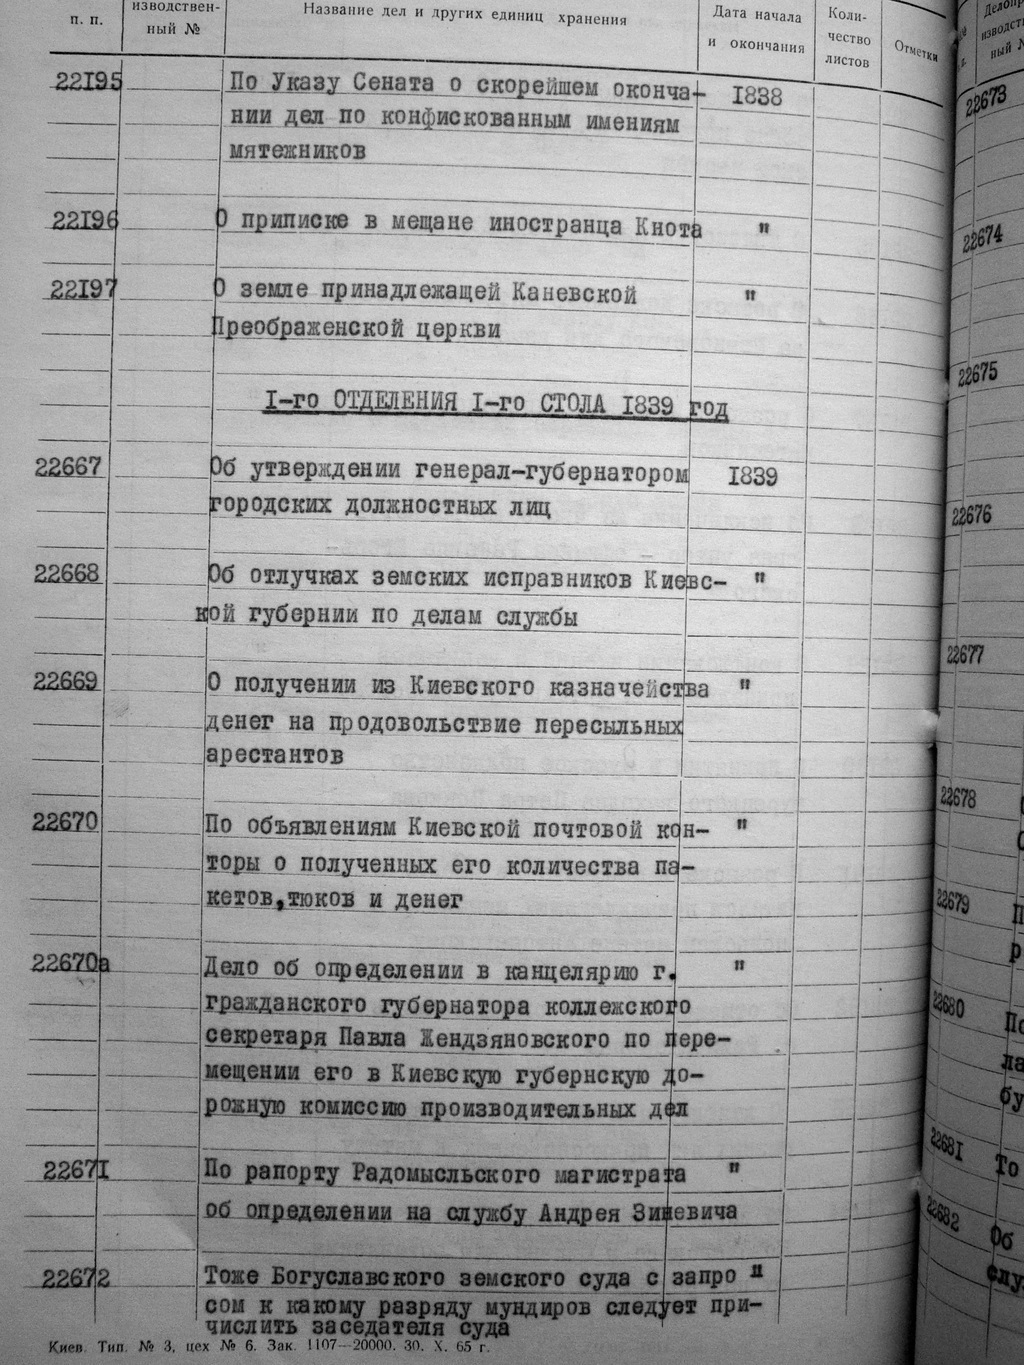 п. п.
изводствен-
ный №
Название дел и других единиц хранения
Дата начала
и окончания
Коли-
чество
листов
Отметки
22I95 По Указу Сената о скорейшем оконча- I838
нии дел по конфискованным имениям
мятежников
22I96 О приписке в мещане иностранца Кнота "
22I97 О земле принадлежащей Каневской "
Преображенской церкви
I-го ОТДЕЛЕНИЯ I-го СТОЛА I839 год
22667 Об утверждении генерал-губернатором I839
городских должностных лиц
22668 Об отлучках земских исправников Киевс- "
кой губернии по делам службы
22669 О получении из Киевского казначейства "
денег на продовольствие пересыльных
арестантов
22670 По объявлениям Киевской почтовой кон- "
торы о полученных его количества па-
кетов,тюков и денег
22670а Дело об определении в канцелярию г. "
гражданского губернатора коллежского
секретаря Павла Жендзяновского по пере-
мещении его в Киевскую губернскую до-
рожную комиссию производительных дел
2267I По рапорту Радомысльского магистрата "
об определении на службу Андрея Зиневича
22672 Тоже Богуславского земского суда с запро "
сом к какому разряду мундиров следует при-
числить заседателя суда
Киев. Тип. № 3, цех № 6. Зак. 1107—20000. 30. X. 65 г.
ный №
22673
22674
22675
22676
22677
22678
22679
22680
2268I
То
22682
Об